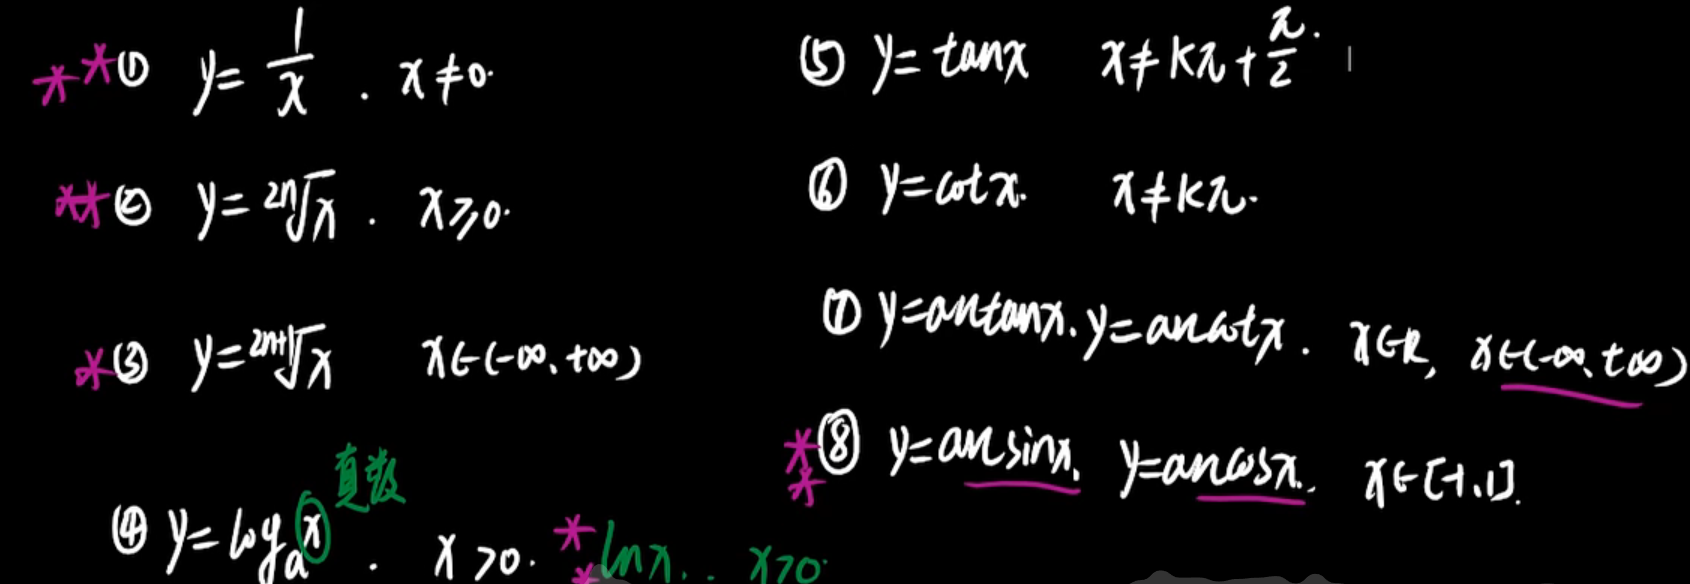 ** ① y = 1/x . x ≠ 0.
** ② y = ²ⁿ√x . x ≥ 0.
* ③ y = ²ⁿ⁺¹√x x ∈ (-∞, +∞)
真数
④ y = logₐx . x > 0. ** lnx. . x > 0.
⑤ y = tanx x ≠ kπ + π/2.
⑥ y = cotx. x ≠ kπ.
⑦ y = arctanx. y = arccotx. x ∈ R, x ∈ (-∞, +∞)
** ⑧ y = arcsinx, y = arccosx. x ∈ [-1, 1].